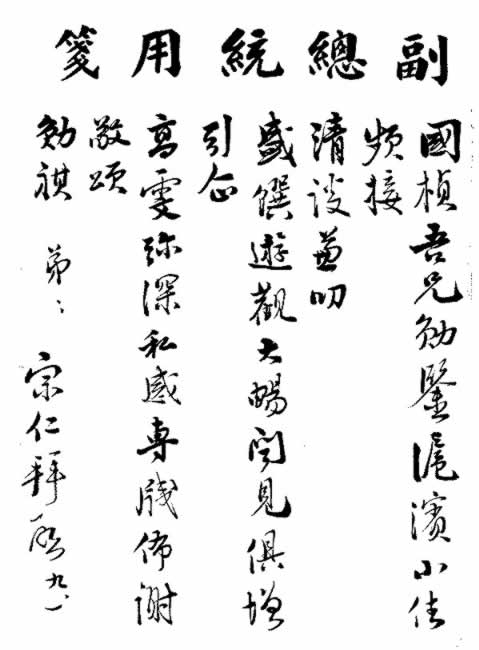 副總統用箋
國楨吾兄勛鑒滬濱小住
頻接
清談兼叨
盛饌遊觀大暢聞見俱增
引企
高雯弥深私感專牋佈謝
敬頌
勛祺 弟
宗仁拜啓 九.一